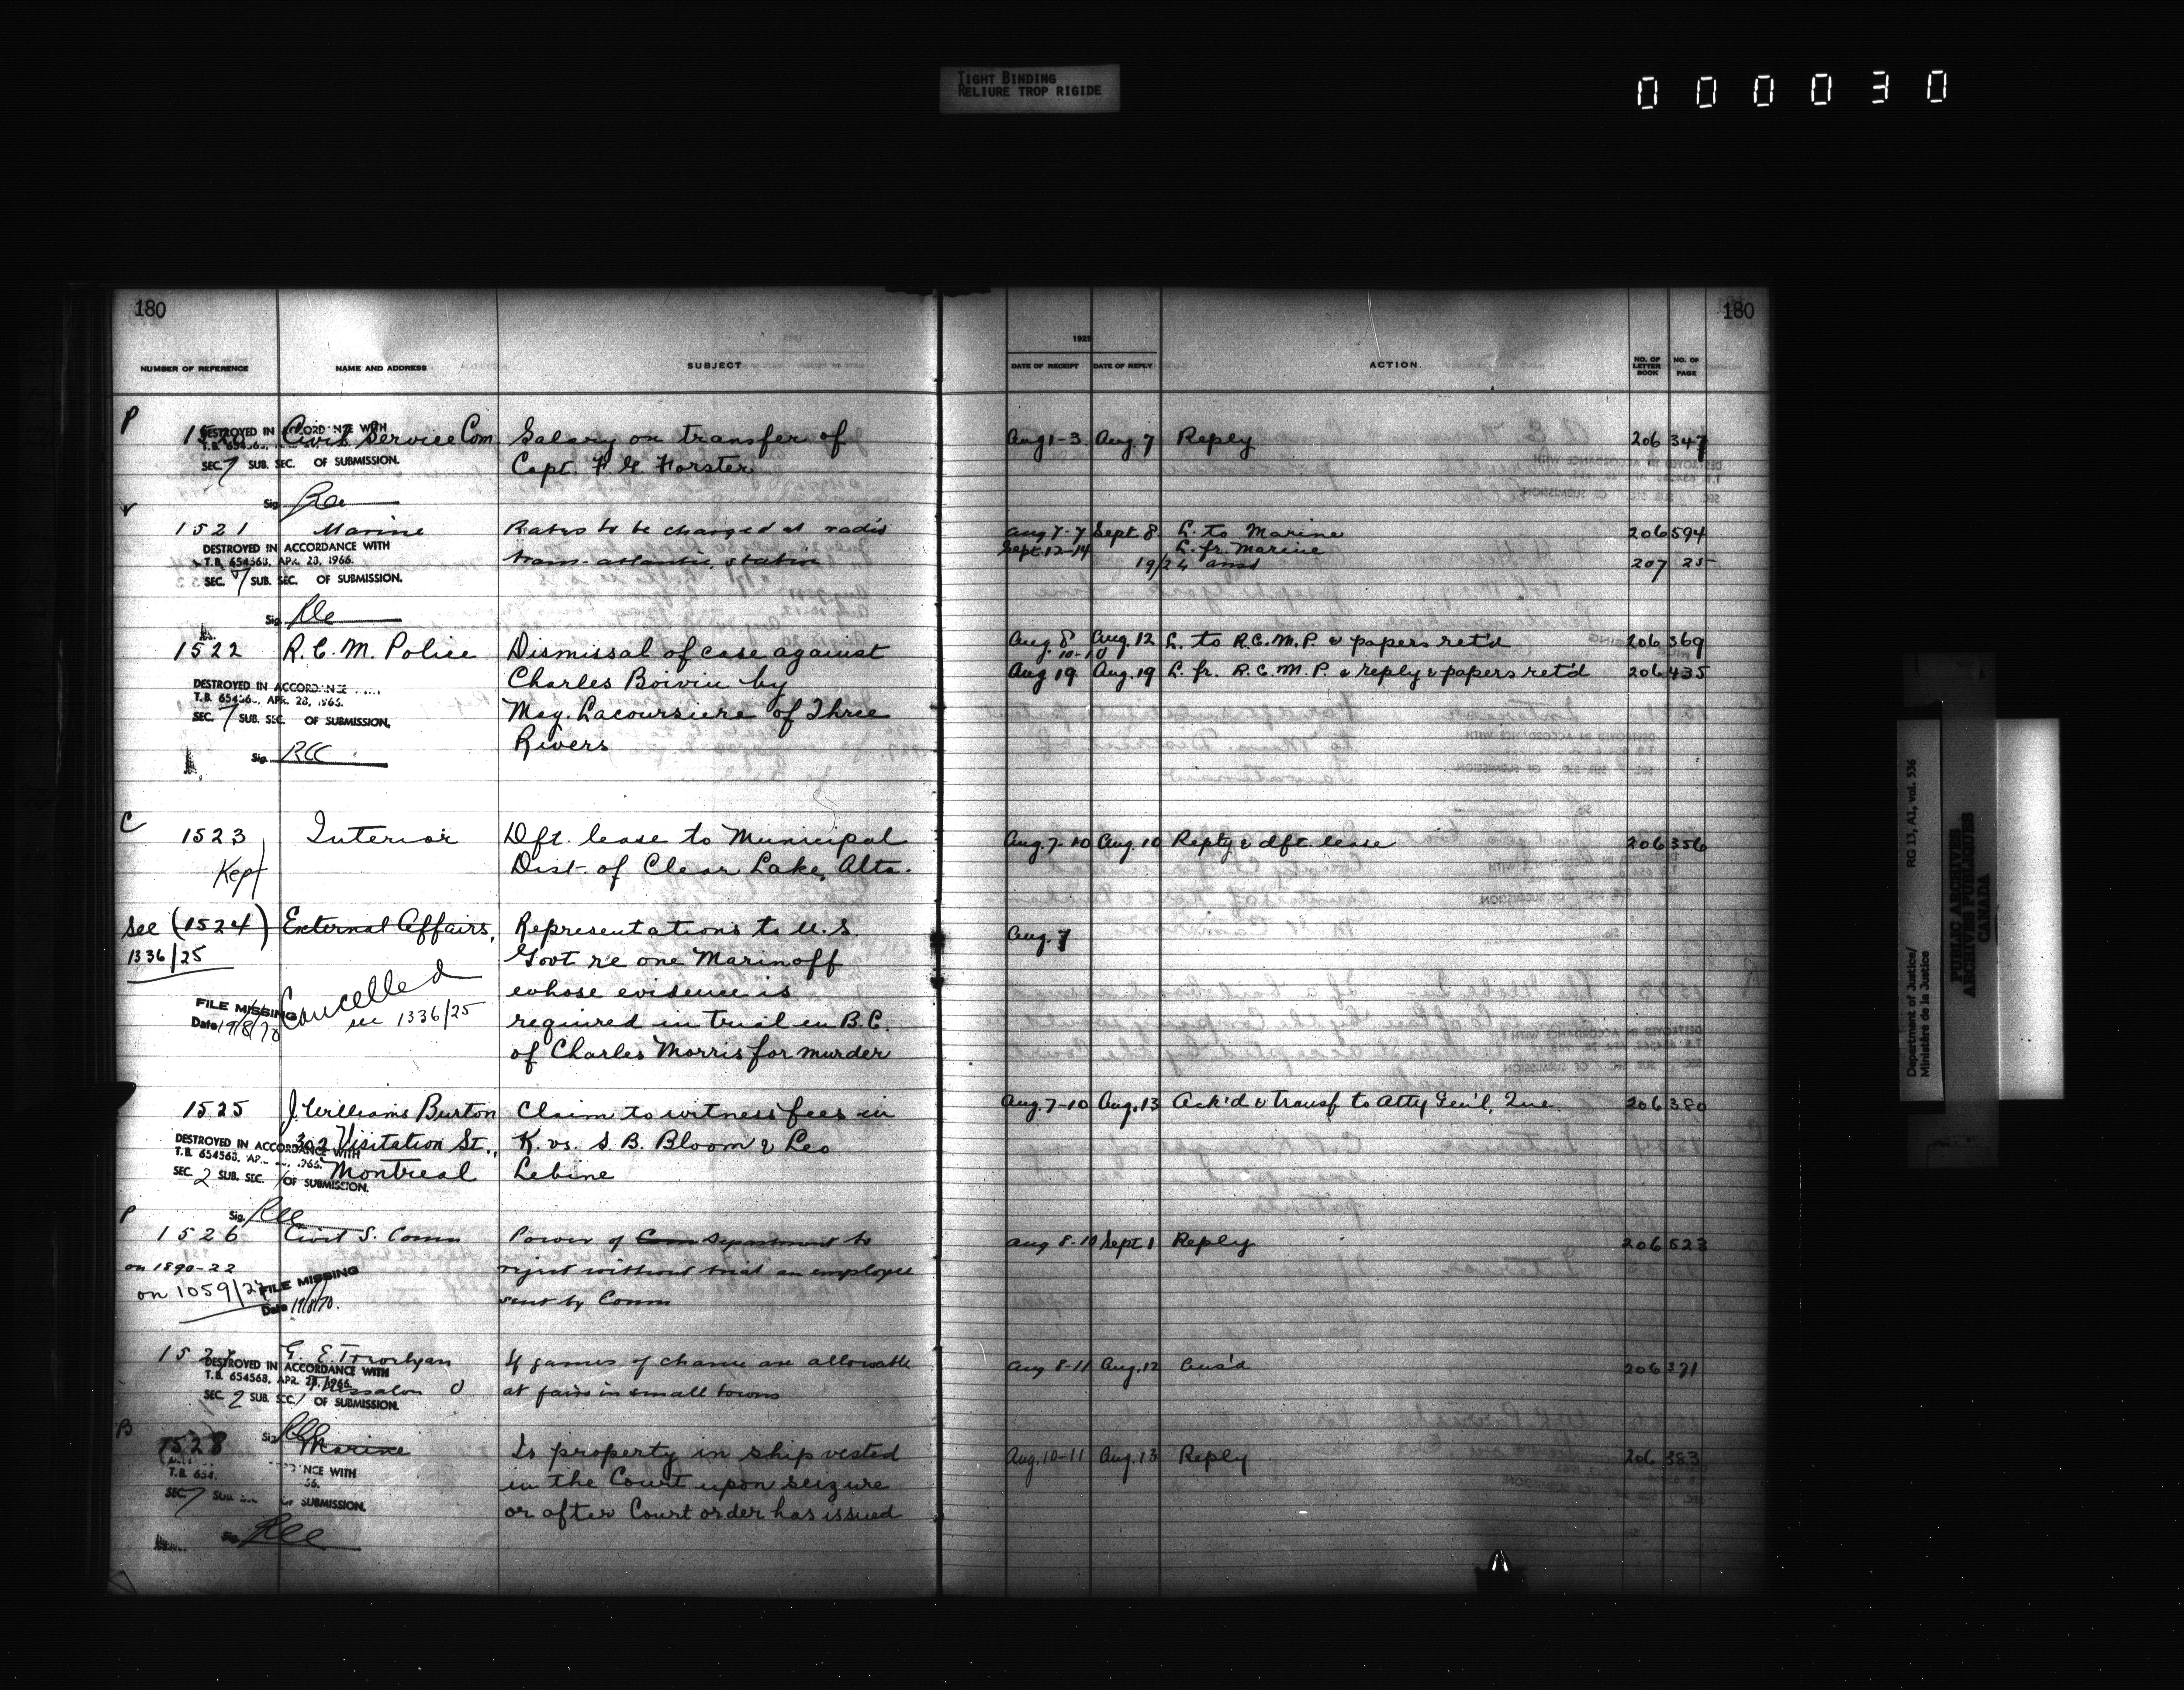 TIGHT BINDING
RELIURE TROP RIGIDE
000030
180
180
1925
NUMBER OF REFERENCE NAME AND ADDRESS SUBJECT DATE OF RECEIPT DATE OF REPLY ACTION NO. OF LETTER BOOK NO. OF PAGE
P
1520 Civil Service Com Salary on transfer of Aug 1-3 Aug. 7 Reply 206 347
Capt. F. G. Forster
DESTROYED IN ACCORDANCE WITH
SEC. 7 SUB. SEC. OF SUBMISSION.
Sig.
1521 Marine Rates to be charged at radio Aug 7-7 Sept 8 L. to Marine 206 594
Sept. 12-14 L. fr. Marine
trans-atlantic station 19/24 ansd 207 25
DESTROYED IN ACCORDANCE WITH
T.B. 654568, APR. 28, 1966.
SEC. 7 SUB. SEC. OF SUBMISSION.
Sig.
1522 R.C.M. Police Dismissal of case against Aug. 8 Aug. 12 L. to R.C.M.P. & papers ret'd 206 369
10-10
Charles Boivin by Aug 19 Aug. 19 L. fr. R.C.M.P. & reply & papers ret'd 206 435
Mag. Lacoursiere of Three
Rivers
DESTROYED IN ACCORDANCE
T.B. 65456, APR. 28, 1966.
SEC. 7 SUB. SEC. OF SUBMISSION.
Sig.
C
1523 Interior Dft. lease to Municipal Aug. 7-10 Aug. 10 Reply & dft. lease 206 356
Kept Dist. of Clear Lake, Alta.
See (1524) External Affairs, Representations to U.S. Aug. 7
1336/25 Govt re one Marinoff
whose evidence is
required in trial in B.C.
of Charles Morris for murder
FILE MISSING
Date 19/8/70
Cancelled
see 1336/25
1525 J. Williams Burton Claim to witness fees in Aug. 7-10 Aug. 13 Ack'd & transf to Atty Gen'l, Que. 206 380
302 Visitation St., K. vs. S. B. Bloom & Leo
Montreal Lebine
DESTROYED IN ACCORDANCE WITH
T.B. 654568, AP
SEC. 2 SUB. SEC. 1 OF SUBMISSION.
Sig.
P
1526 Civil S. Comm Power of Com Department to Aug 8-10 Sept 1 Reply 206 523
on 1890-22 reject without trial an employee
on 1059/24 sent by Comm
FILE MISSING
Date 19/8/70.
1527 G. E. If games of chance are allowable Aug 8-11 Aug. 12 Ans'd 206 371
Thessalon O at fairs in small towns
DESTROYED IN ACCORDANCE WITH
T.B. 654568, APR. 28, 1966.
SEC. 2 SUB. SEC. 1 OF SUBMISSION.
Sig.
B
1528 Marine Is property in ship vested Aug. 10-11 Aug. 13 Reply 206 383
in the Court upon seizure
or after Court order has issued
T.B. 654
SEC. 7 SUB. OF SUBMISSION.
Department of Justice/ RG 13, A1, vol. 536
Ministère de la Justice
PUBLIC ARCHIVES
ARCHIVES PUBLIQUES
CANADA